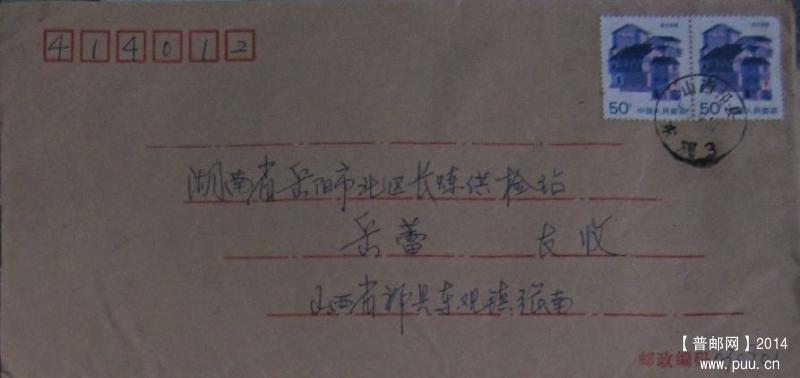 414012
50分 中国人民邮政
50分 中国人民邮政
山西祁县
3
湖南省岳阳市北区长炼供检站
岳蕾 友收
山西省祁县东观镇张南
邮政编码
【普邮网】2014
www.puu.cn